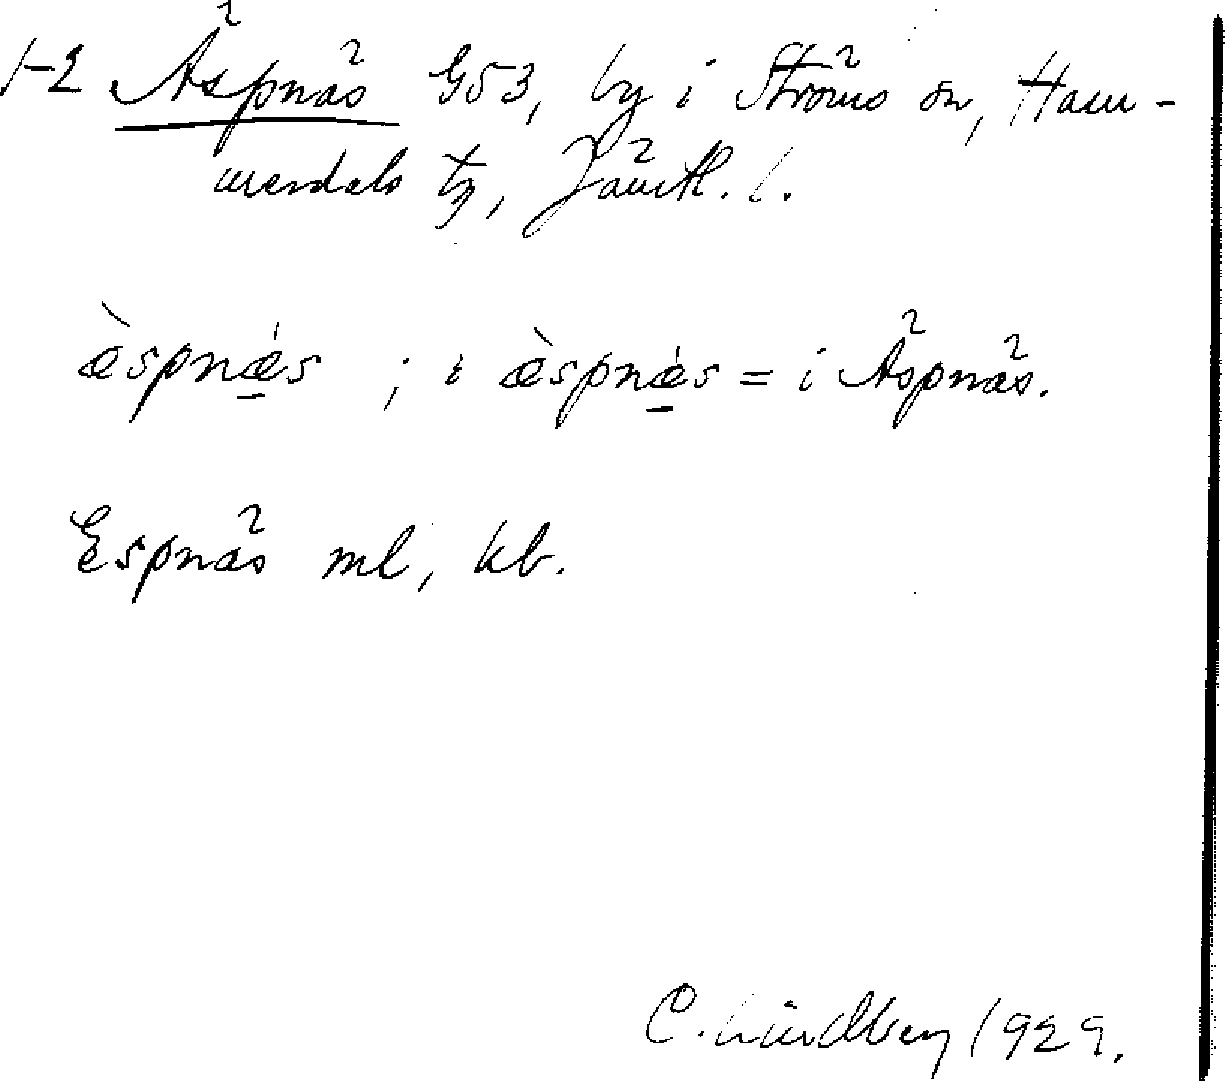 1-2 Äspnäs G53, by i Ströms sn, Ham-
merdals tg, Jämtl. l.
æ̀spnǽ̱s ; i æ̀spnǽ̱s = i Äspnäs.
Espnäs ml, kb.
C. Lindberg 1929.